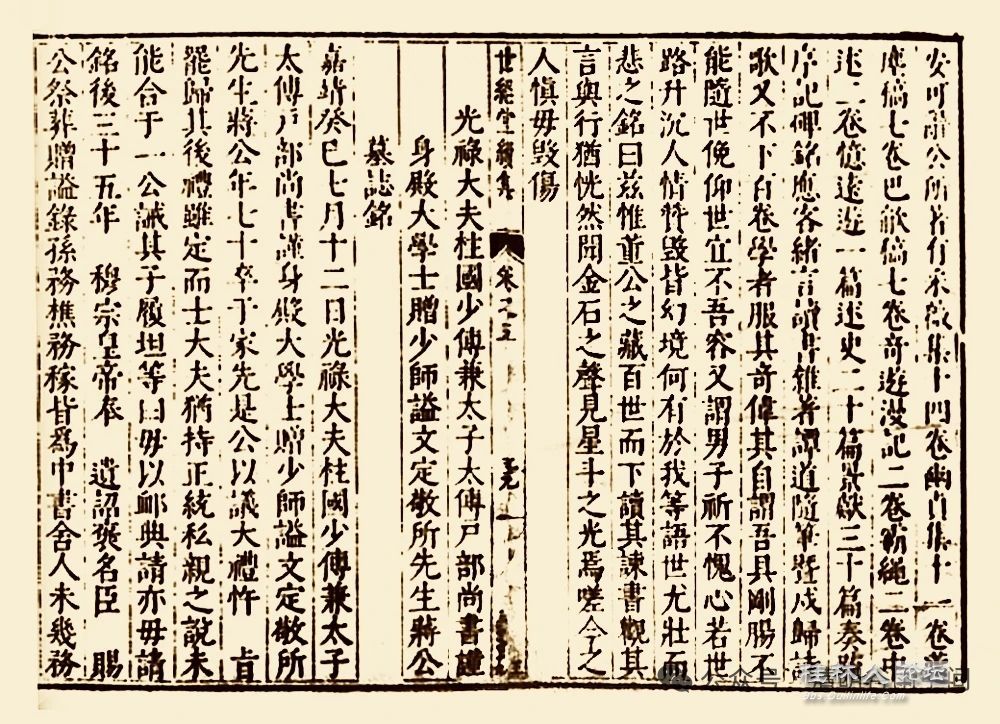 安可謂公所著有采薇集十四卷幽貞集十一卷
稿七卷巴歈稿七卷奇遊漫記二卷繩二卷中
述二卷憶遠遊一篇述史二十篇獻三十篇奏疏
序記碑銘應客緒言讀書雜著譚道隨筆曁戍歸詩
歌又不下百卷學者服其奇偉其自謂吾具剛腸不
能隨世俛仰世宜不吾容又謂男子祈不愧心若世
路升沉人情贊毀皆幻境何有於我等語世尤壯而
悲之銘曰茲惟董公之藏百世而下讀其諫書觀其
言與行猶恍然聞金石之聲見星斗之光焉嗟今之
人慎毋毀傷
世經堂續集 卷之五
光祿大夫柱國少傅兼太子太傅戶部尚書謹
身殿大學士贈少師謚文定敬所先生蔣公
墓誌銘
嘉靖癸巳七月十二日光祿大夫柱國少傅兼太子
太傅戶部尚書謹身殿大學士贈少師謚文定敬所
先生蔣公年七十卒于家先是公以議大禮忤 旨
罷歸其後禮雖定而士大夫猶持正統私親之說未
能合于一公誡其子履坦等曰毋以卹典請亦毋請
銘後三十五年 穆宗皇帝奉 遺詔褒名臣 賜
公祭葬贈謚錄孫務樵務稼皆爲中書舍人未幾務
桂林人论坛
bbs.Guilinlife.com